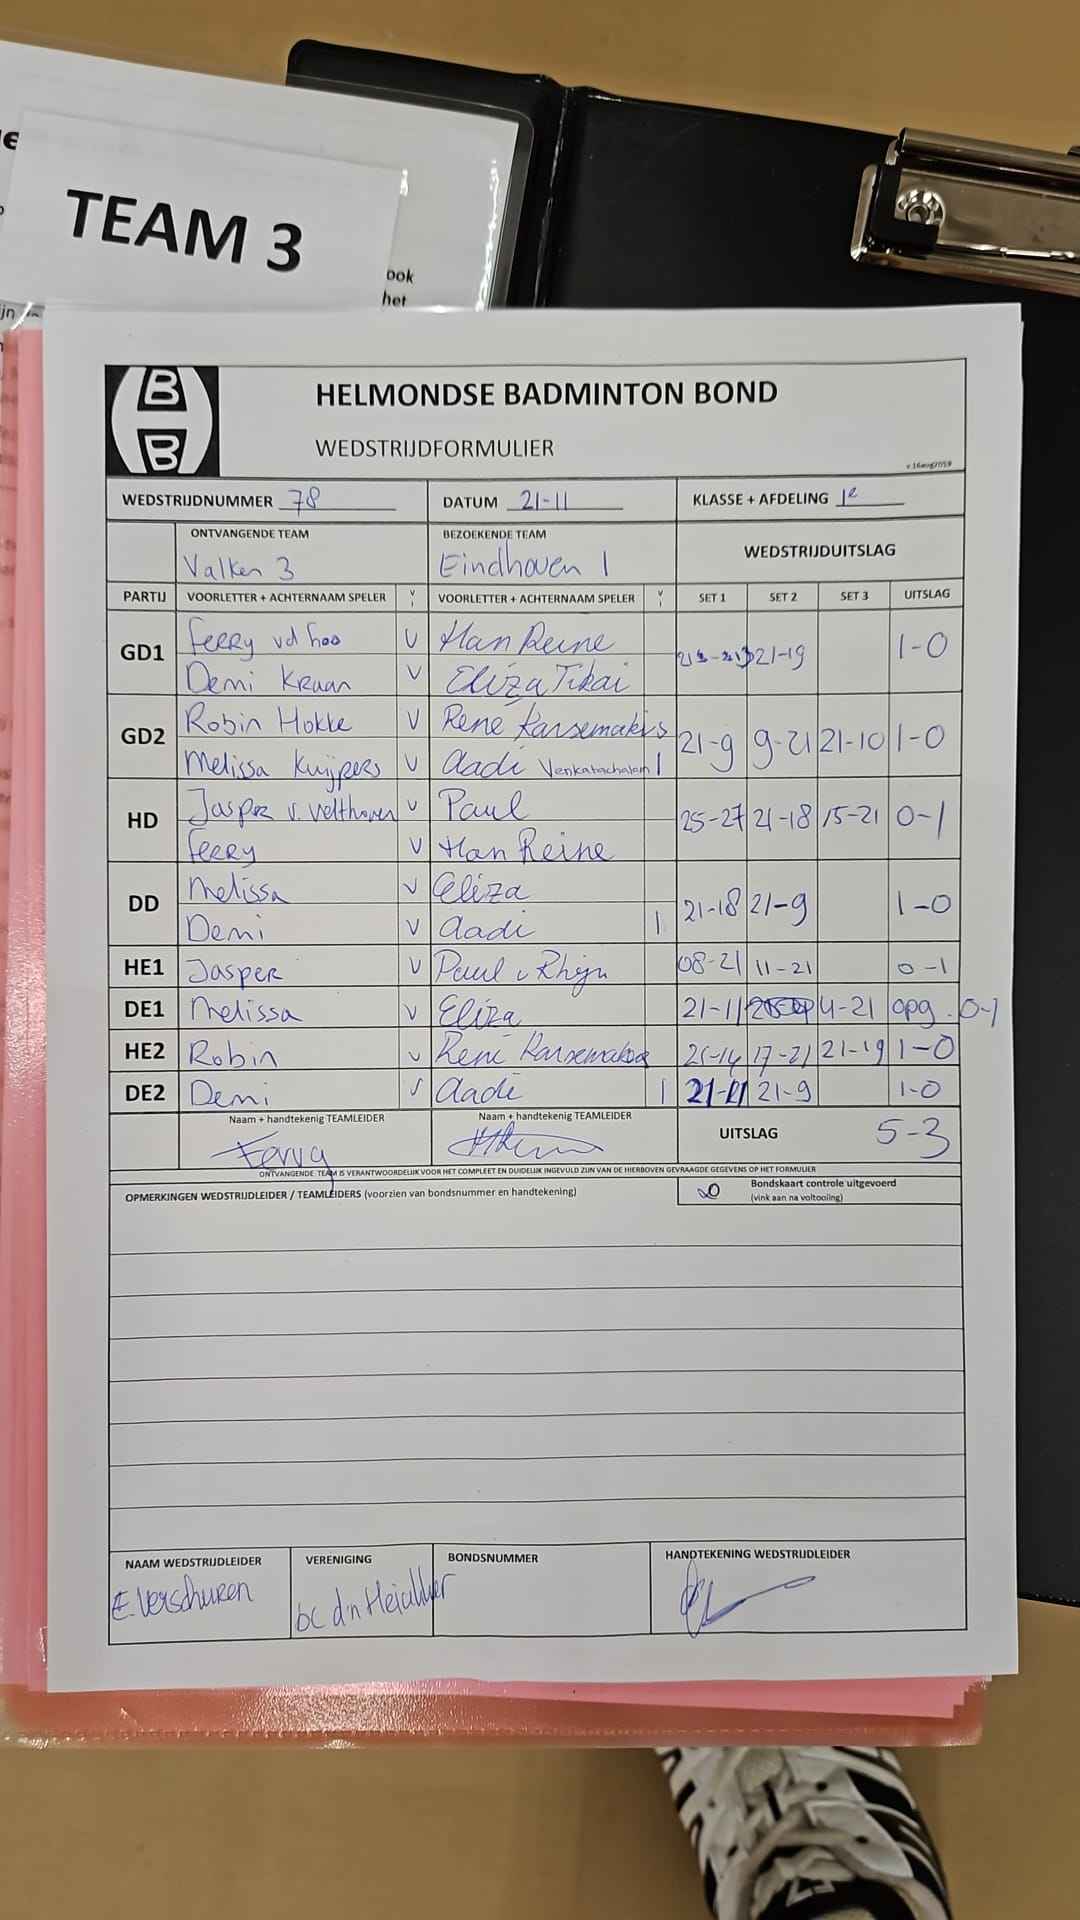 TEAM 3
ook
het
ijn
B
B
HELMONDSE BADMINTON BOND
WEDSTRIJDFORMULIER
v.16aug2019
WEDSTRIJDNUMMER 78 DATUM 21-11 KLASSE + AFDELING 1e
ONTVANGENDE TEAM BEZOEKENDE TEAM WEDSTRIJDUITSLAG
Valken 3 Eindhoven 1
PARTIJ VOORLETTER + ACHTERNAAM SPELER V/I VOORLETTER + ACHTERNAAM SPELER V/I SET 1 SET 2 SET 3 UITSLAG
GD1 Ferry vd hoo V Han Reine 21-19 1-0
Demi Kraan V Eliza Tikai
GD2 Robin Hokke V René Karsemakers 21-9 9-21 21-10 1-0
Melissa Kuijpers V Aadi Venkatachalam I
HD Jasper v. Velthoven V Paul 25-27 21-18 15-21 0-1
Ferry V Han Reine
DD Melissa V Eliza 21-18 21-9 1-0
Demi V Aadi I
HE1 Jasper V Paul v Rhijn 08-21 11-21 0-1
DE1 Melissa V Eliza 21-11 4-21 opg. 0-1
HE2 Robin V René Karsemakers 21-14 17-21 21-19 1-0
DE2 Demi V Aadi I 21-9 1-0
Naam + handtekenig TEAMLEIDER Naam + handtekenig TEAMLEIDER UITSLAG 5-3
ONTVANGENDE TEAM IS VERANTWOORDELIJK VOOR HET COMPLEET EN DUIDELIJK INGEVULD ZIJN VAN DE HIERBOVEN GEVRAAGDE GEGEVENS OP HET FORMULIER
OPMERKINGEN WEDSTRIJDLEIDER / TEAMLEIDERS (voorzien van bondsnummer en handtekening) Bondskaart controle uitgevoerd
(vink aan na voltooiing)
NAAM WEDSTRIJDLEIDER VERENIGING BONDSNUMMER HANDTEKENING WEDSTRIJDLEIDER
E. Verschuren bc d'n